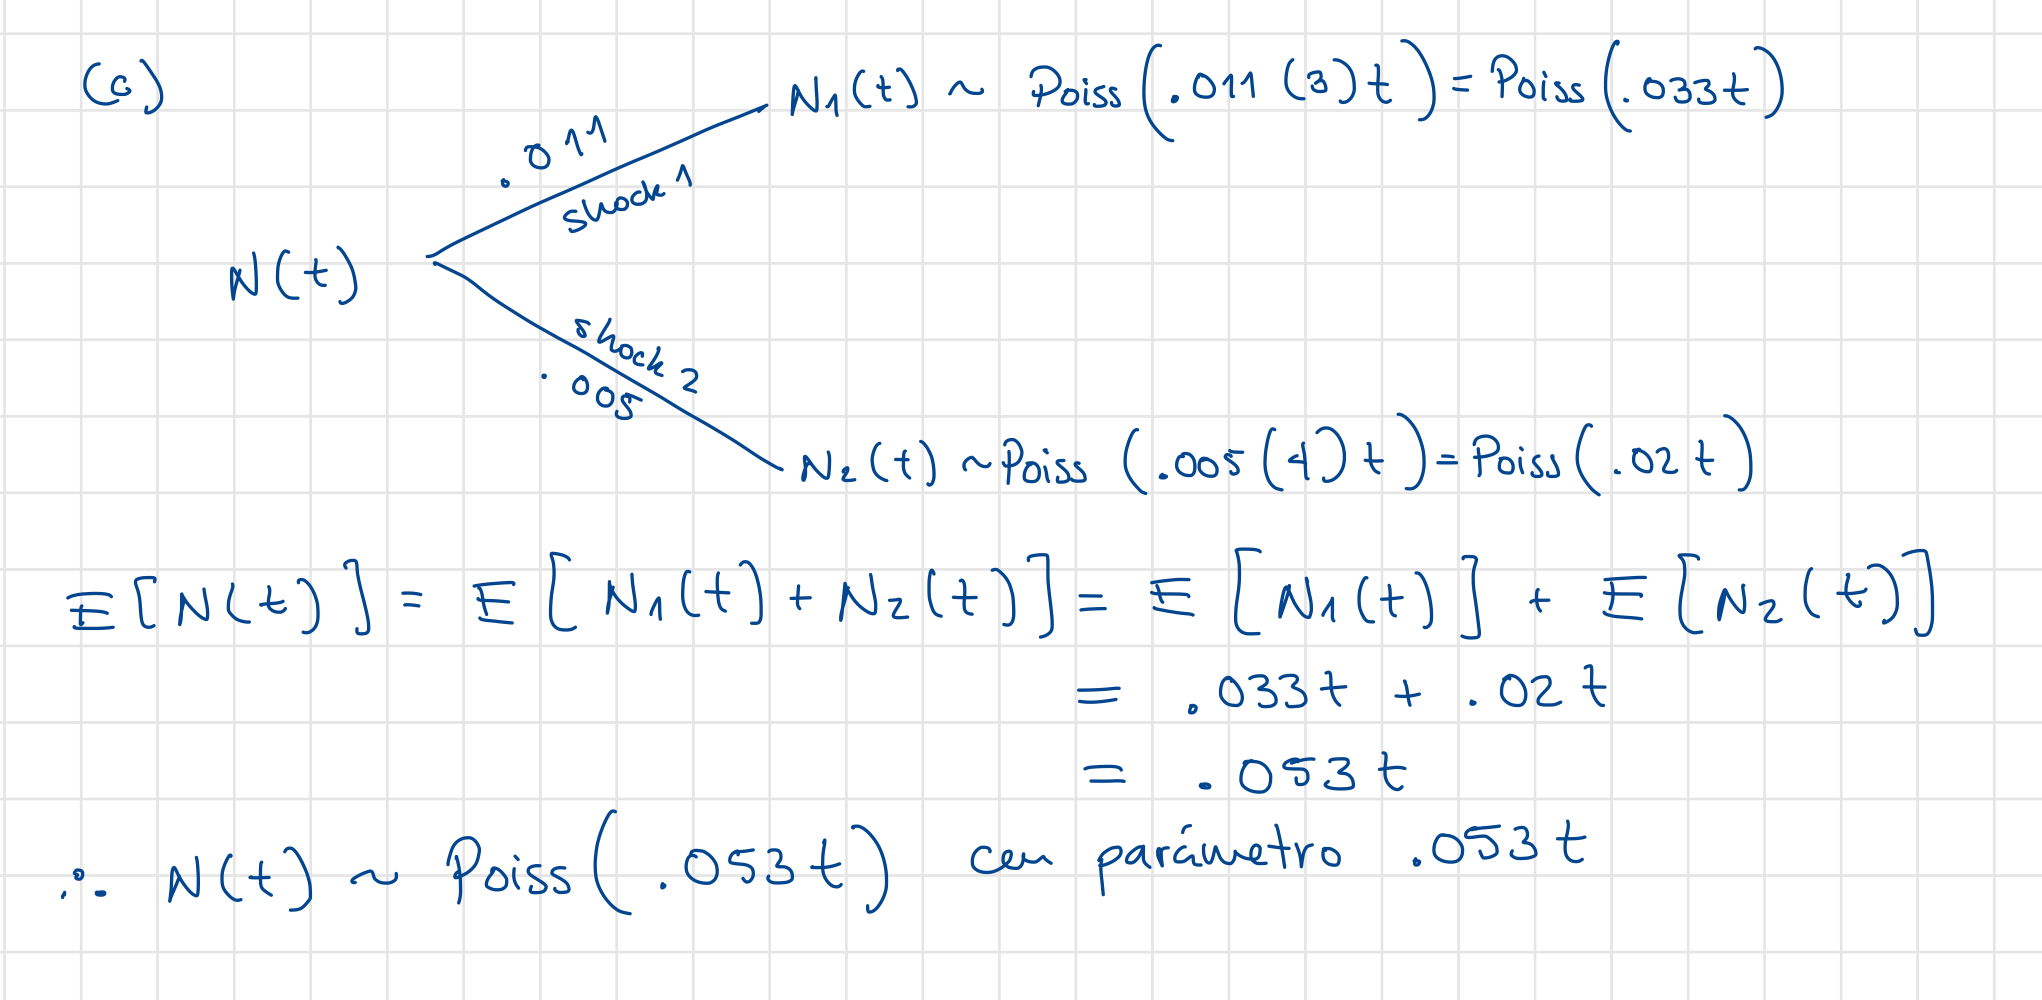 (a) N₁(t) ~ Poiss(.011 (3) t) = Poiss(.033t)
.011
shock 1
N(t)
shock 2
.005
N₂(t) ~ Poiss (.005(4) t) = Poiss(.02 t)
E[N(t)] = E[N₁(t) + N₂(t)] = E[N₁(t)] + E[N₂(t)]
= .033t + .02 t
= .053 t
∴ N(t) ~ Poiss(.053 t) con parámetro .053 t